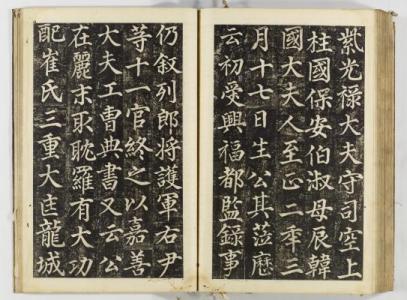 紫光祿大夫守司空上
柱國保安伯淑母辰韓
國大夫人至正二年三
月十七日生公其莅歷
云初受興福都監錄事
仍叙列郎將護軍右尹
等十一官終之以嘉善
大夫工曹典書又云公
在麗末取耽羅有大功
配崔氏三重大匡龍城